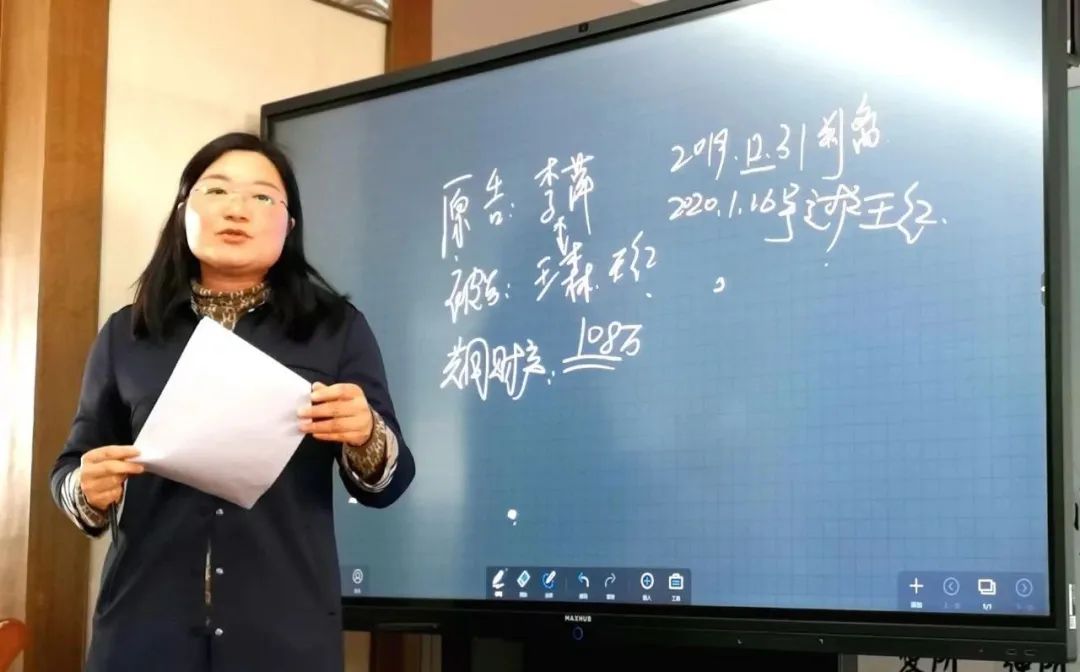 原告：李萍
被告：王森、王红
共同财产：108万
2019.12.31判离
2020.1.16号过户王红.
MAXHUB
1/1